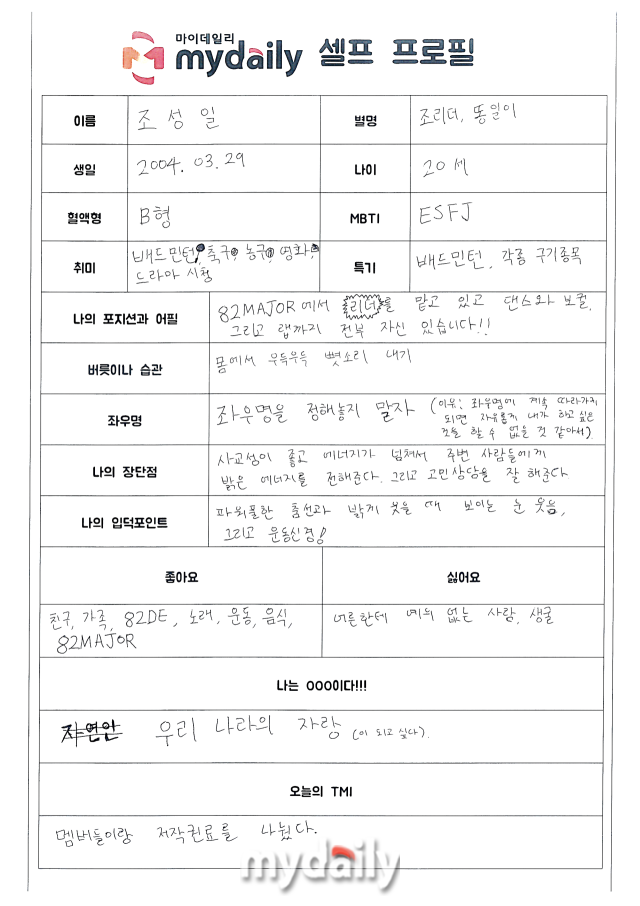 마이데일리
mydaily 셀프 프로필
이름 조성일 별명 조리더, 똥일이
생일 2004. 03. 29 나이 20세
혈액형 B형 MBTI ESFJ
취미 배드민턴, 축구, 농구, 영화,
드라마 시청
특기 배드민턴, 각종 구기종목
나의 포지션과 어필 82MAJOR에서 리더를 맡고 있고 댄스와 보컬,
그리고 랩까지 전부 자신 있습니다!!
버릇이나 습관 몸에서 우득우득 뼛소리 내기
좌우명 좌우명을 정해놓지 말자 (이유: 좌우명에 계속 따라가게
되면 자유롭게 내가 하고 싶은
것을 할 수 없을 것 같아서).
나의 장단점 사교성이 좋고 에너지가 넘쳐서 주변 사람들에게
밝은 에너지를 전해준다. 그리고 고민상담을 잘 해준다
나의 입덕포인트 파워풀한 춤선과 밝게 웃을 때 보이는 눈 웃음,
그리고 운동신경!
좋아요 싫어요
친구, 가족, 82DE, 노래, 운동, 음식,
82MAJOR
어른한테 예의 없는 사람, 생굴
나는 OOO이다!!!
자연인 우리 나라의 자랑 (이 되고 싶다).
오늘의 TMI
멤버들이랑 저작권료를 나눴다.
mydaily